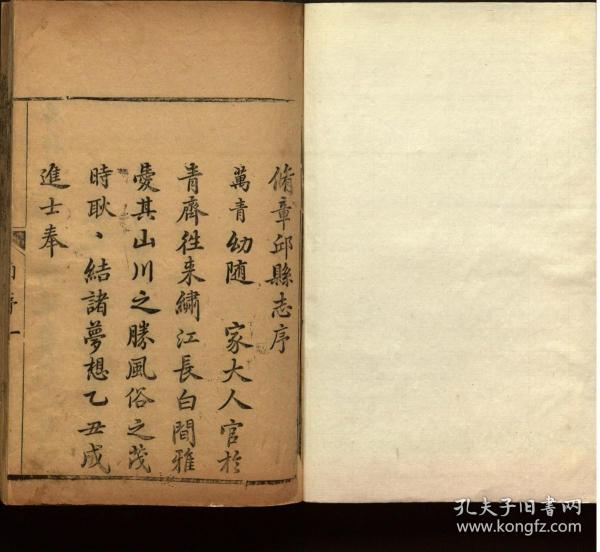 脩章邱縣志序
萬青幼随 家大人官於
青齊徃来繡江長白間雅
愛其山川之勝風俗之茂
時耿、結諸夢想乙丑成
進士奉
孔夫子旧书网
www.kongfz.com